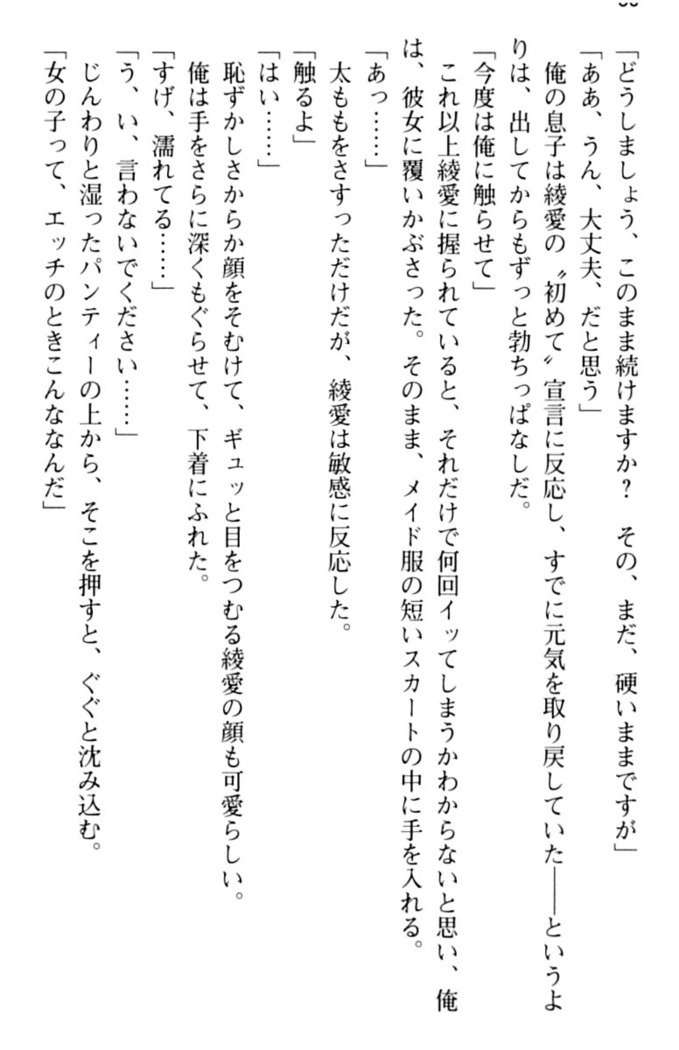 「どうしましょう、このまま続けますか？　その、まだ、硬いままですが」
「ああ、うん、大丈夫、だと思う」
　俺の息子は綾愛の〝初めて〟宣言に反応し、すでに元気を取り戻していた――というよ
りは、出してからもずっと勃ちっぱなしだ。
「今度は俺に触らせて」
　これ以上綾愛に握られていると、それだけで何回イッてしまうかわからないと思い、俺
は、彼女に覆いかぶさった。そのまま、メイド服の短いスカートの中に手を入れる。
「あっ……」
　太ももをさすっただけだが、綾愛は敏感に反応した。
「触るよ」
「はい……」
　恥ずかしさからか顔をそむけて、ギュッと目をつむる綾愛の顔も可愛らしい。
　俺は手をさらに深くもぐらせて、下着にふれた。
「すげ、濡れてる……」
「う、い、言わないでください……」
　じんわりと湿ったパンティーの上から、そこを押すと、ぐぐと沈み込む。
「女の子って、エッチのときこんななんだ」